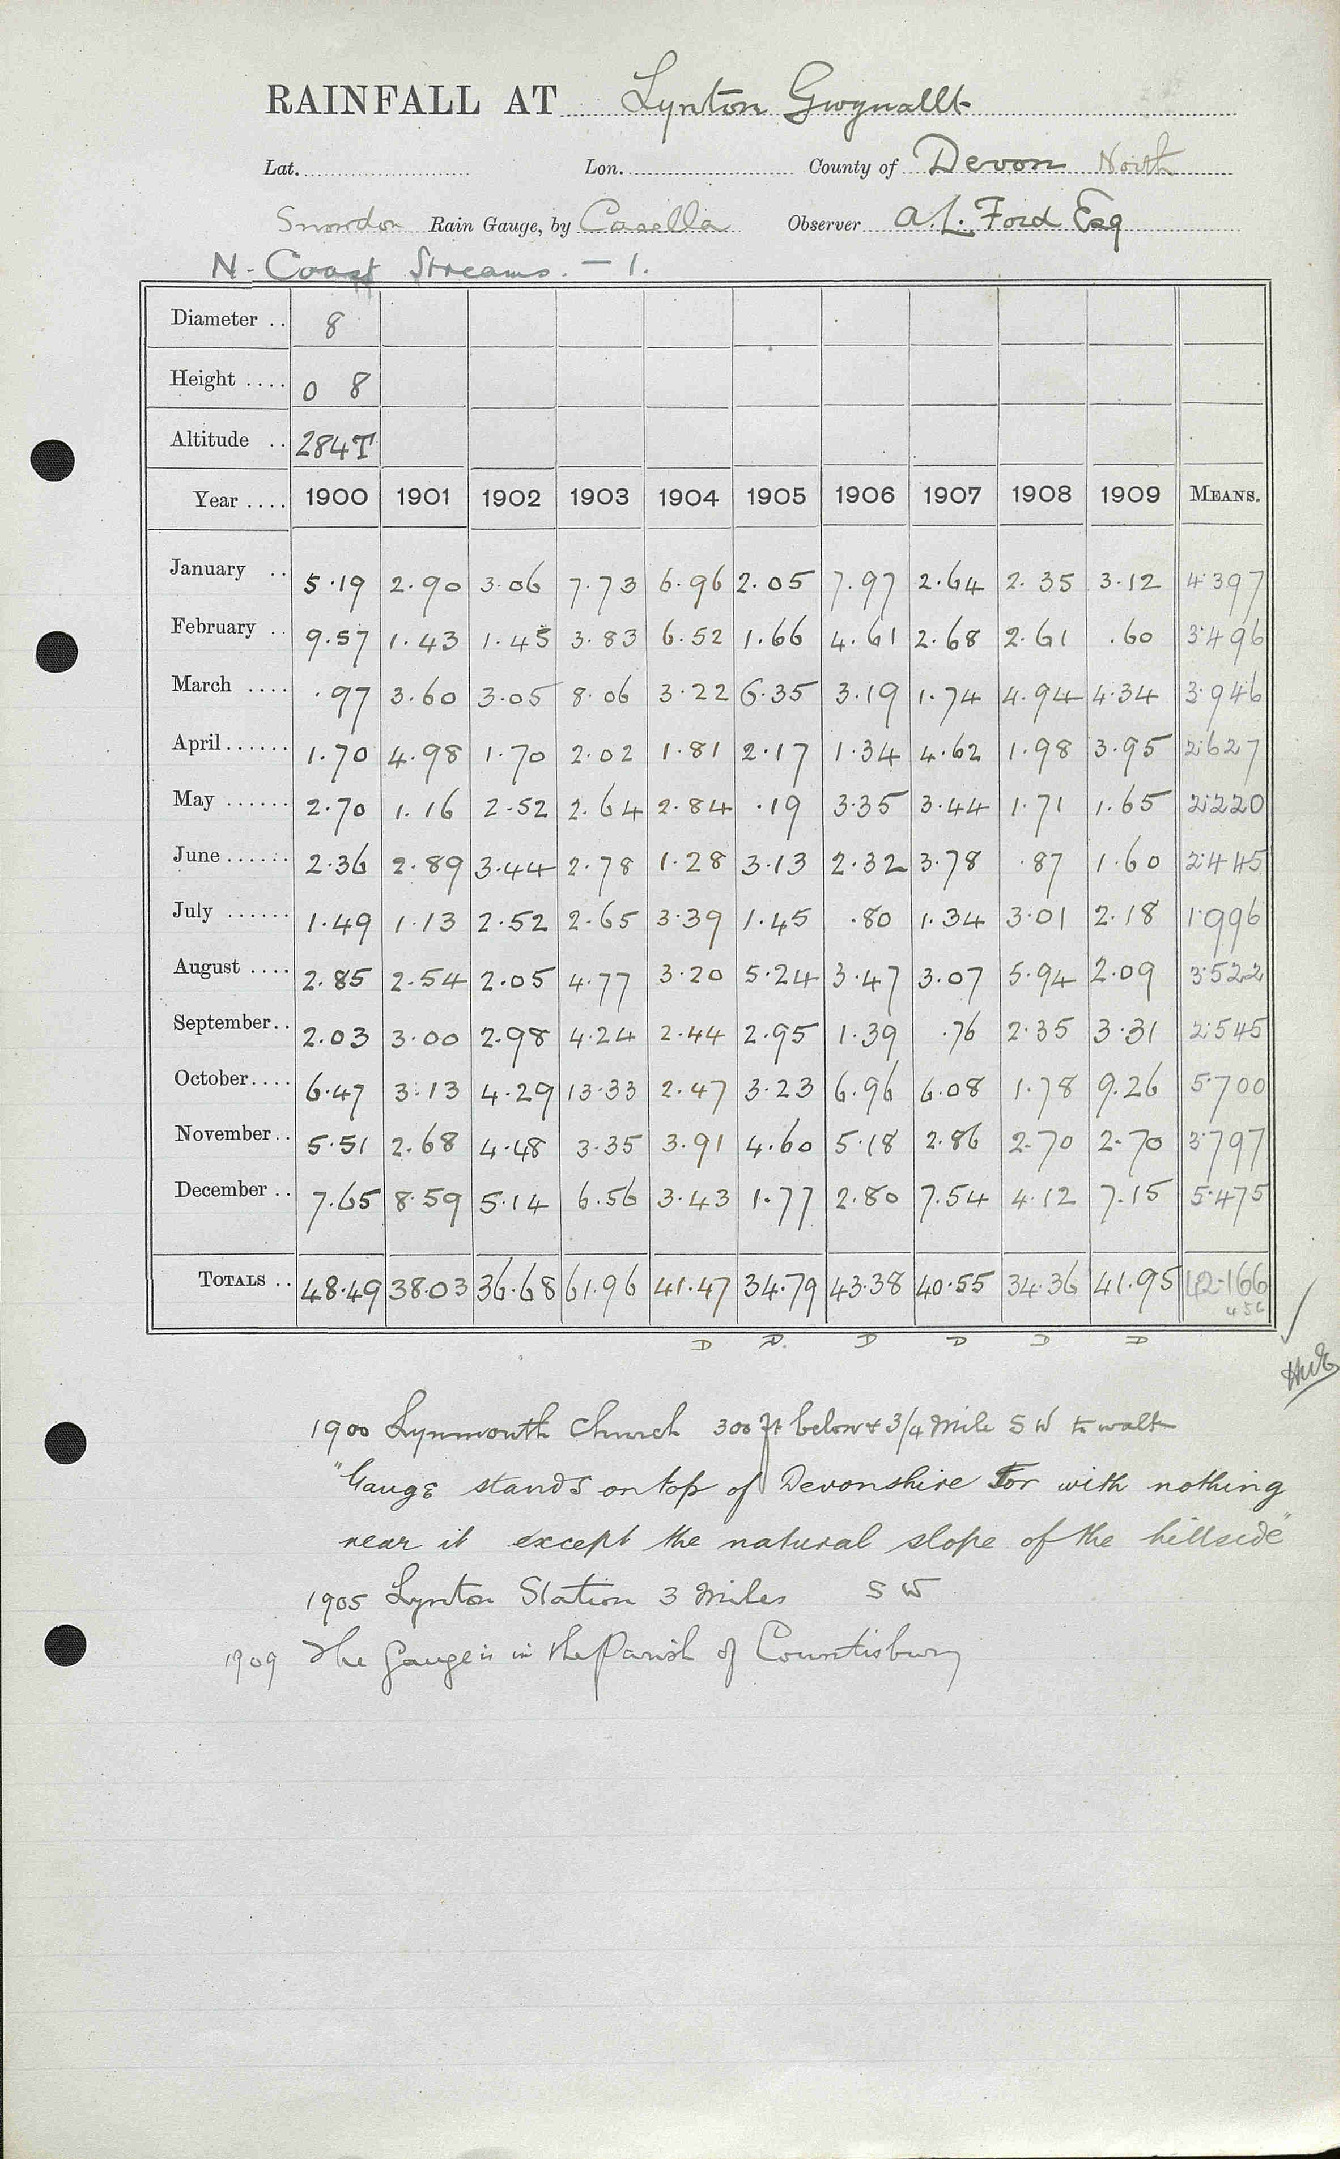 RAINFALL AT Lynton Gwynallt
Lat. Lon. County of Devon North
Snowdon Rain Gauge, by Casella Observer A. L. Ford Esq
N. Coast Streams. - 1.
Diameter .. 8
Height .... 0 8
Altitude .. 284T
Year .... 1900 1901 1902 1903 1904 1905 1906 1907 1908 1909 MEANS.
January .. 5.19 2.90 3.06 7.73 6.96 2.05 7.97 2.64 2.35 3.12 4.397
February .. 9.57 1.43 1.45 3.83 6.52 1.66 4.61 2.68 2.61 .60 3.496
March .... .97 3.60 3.05 8.06 3.22 6.35 3.19 1.74 4.94 4.34 3.946
April...... 1.70 4.98 1.70 2.02 1.81 2.17 1.34 4.62 1.98 3.95 2.627
May ...... 2.70 1.16 2.52 2.64 2.84 .19 3.35 3.44 1.71 1.65 2.220
June...... 2.36 2.89 3.44 2.78 1.28 3.13 2.32 3.78 .87 1.60 2.445
July ...... 1.49 1.13 2.52 2.65 3.39 1.45 .80 1.34 3.01 2.18 1.996
August .... 2.85 2.54 2.05 4.77 3.20 5.24 3.47 3.07 5.94 2.09 3.522
September.. 2.03 3.00 2.98 4.24 2.44 2.95 1.39 .76 2.35 3.31 2.545
October.... 6.47 3.13 4.29 13.33 2.47 3.23 6.96 6.08 1.78 9.26 5.700
November.. 5.51 2.68 4.48 3.35 3.91 4.60 5.18 2.86 2.70 2.70 3.797
December .. 7.65 8.59 5.14 6.56 3.43 1.77 2.80 7.54 4.12 7.15 5.475
TOTALS .. 48.49 38.03 36.68 61.96 41.47 34.79 43.38 40.55 34.36 41.95 42.166
D D. D D D D
1900 Lynmouth Church 300 ft below & 3/4 Mile S W to walk
"Gauge stands on top of Devonshire Tor with nothing
near it except the natural slope of the hillside"
1905 Lynton Station 3 Miles S W
1909 The Gauge is in the Parish of Countisbury